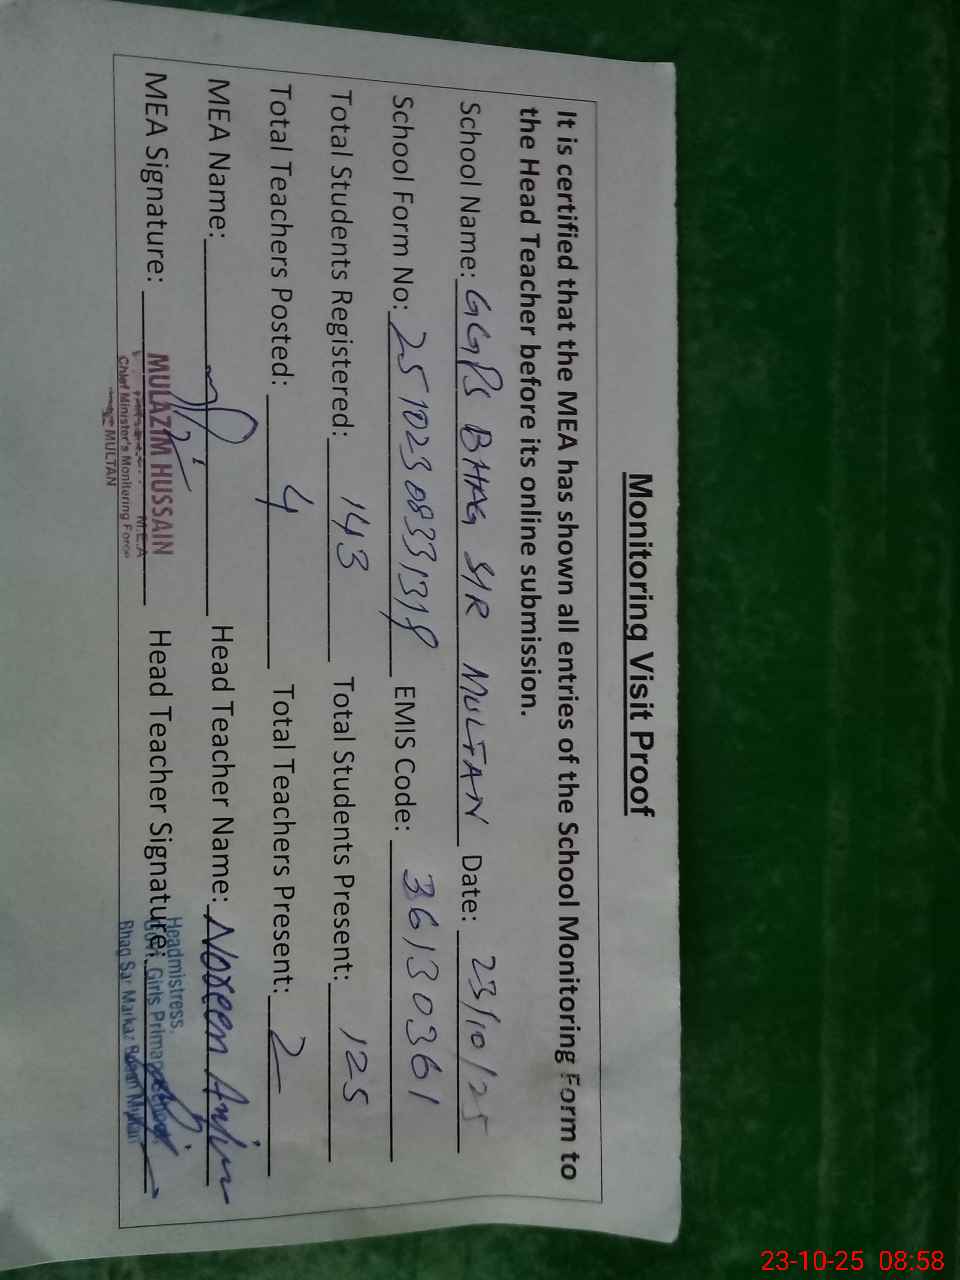 Monitoring Visit Proof
It is certified that the MEA has shown all entries of the School Monitoring Form to
the Head Teacher before its online submission.
School Name: GGPS BHAG SIR MULTAN Date: 23/10/25
School Form No: 25102308331318 EMIS Code: 36130361
Total Students Registered: 143 Total Students Present: 125
Total Teachers Posted: 4 Total Teachers Present: 2
MEA Name: Head Teacher Name: Noreen Anjum
MEA Signature: Head Teacher Signature:
MULAZIM HUSSAIN
M.E.A
Chief Minister's Monitoring Force
MULTAN
Headmistress.
Govt Girls Primary School
Bhag Sar Markaz Multan
23-10-25 08:58